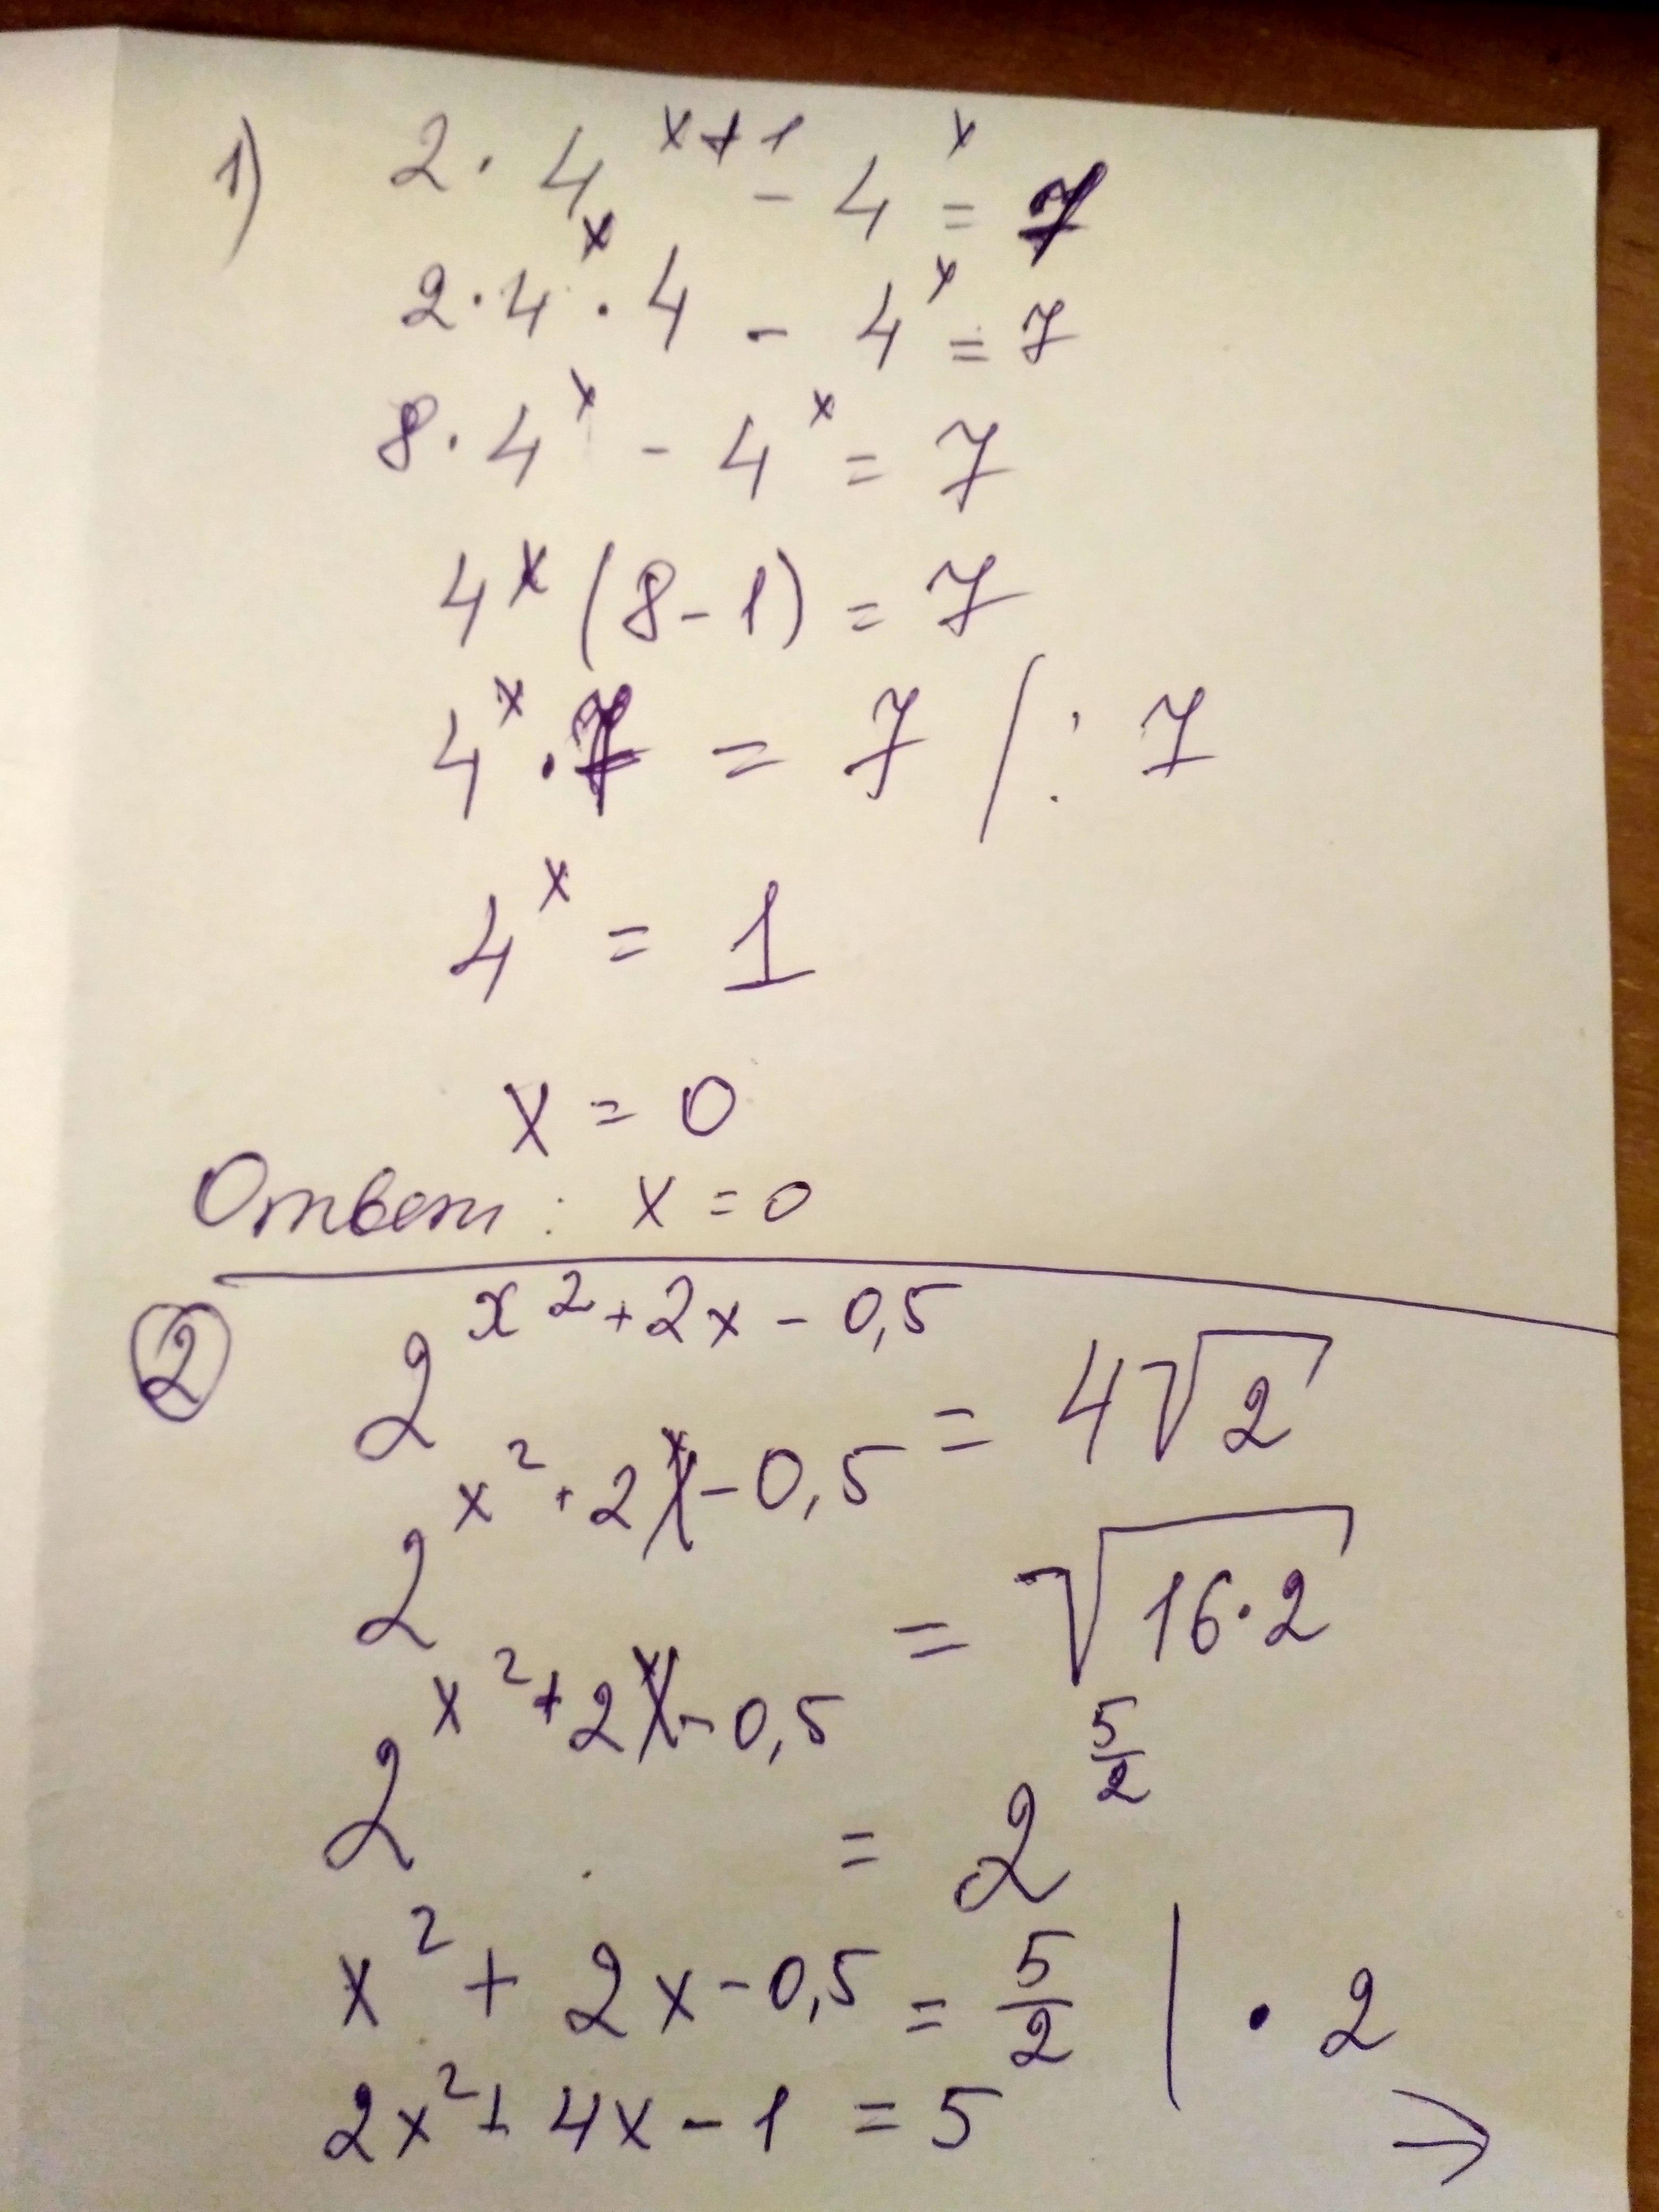 1) 2 · 4^{x+1} - 4^x = 7
2 · 4^x · 4 - 4^x = 7
8 · 4^x - 4^x = 7
4^x (8 - 1) = 7
4^x · 7 = 7 / : 7
4^x = 1
x = 0
Ответ: x = 0
② 2^{x^2+2x-0,5} = 4√2
2^{x^2+2x-0,5} = √{16·2}
2^{x^2+2x-0,5} = 2^{5/2}
x^2 + 2x - 0,5 = 5/2 | · 2
2x^2 + 4x - 1 = 5 →